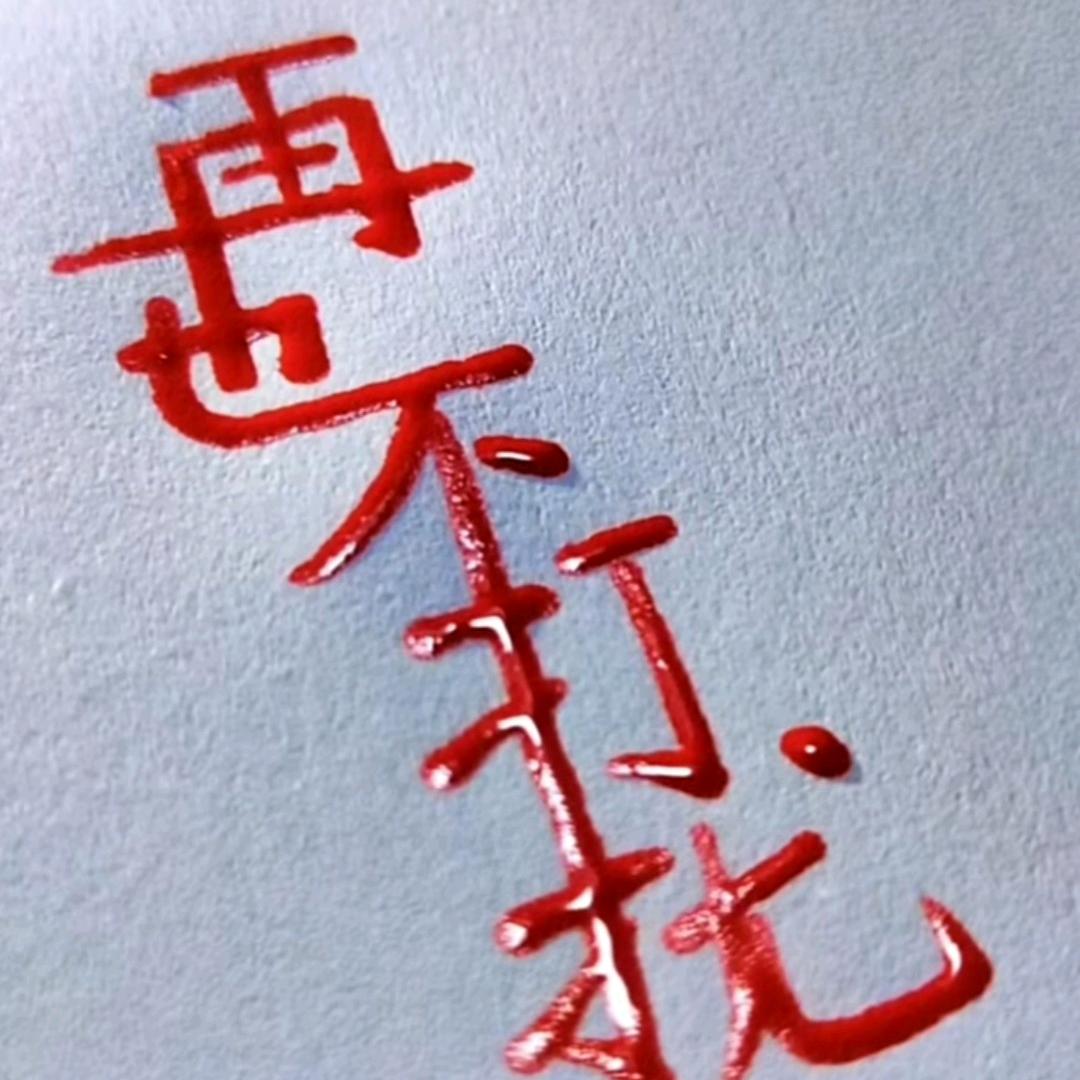 再也不打扰